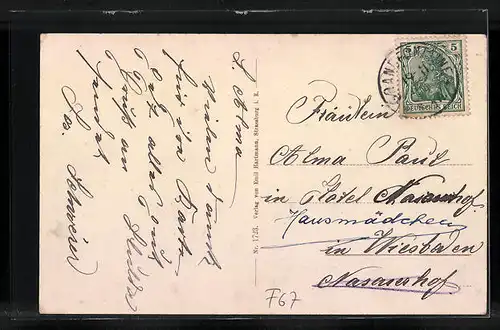 L. Alma
Vielen Dank
für die Karte.
Geht alles gut
Gruß an
Jos. Schweier
Nr. 1723. Verlag von Emil Hartmann, Strassburg i. E.
5 5
DEUTSCHES REICH
Fräulein
Alma Paul
in Hotel Nassauhof
Hausmädchen
in Wiesbaden
Nassauhof
F67